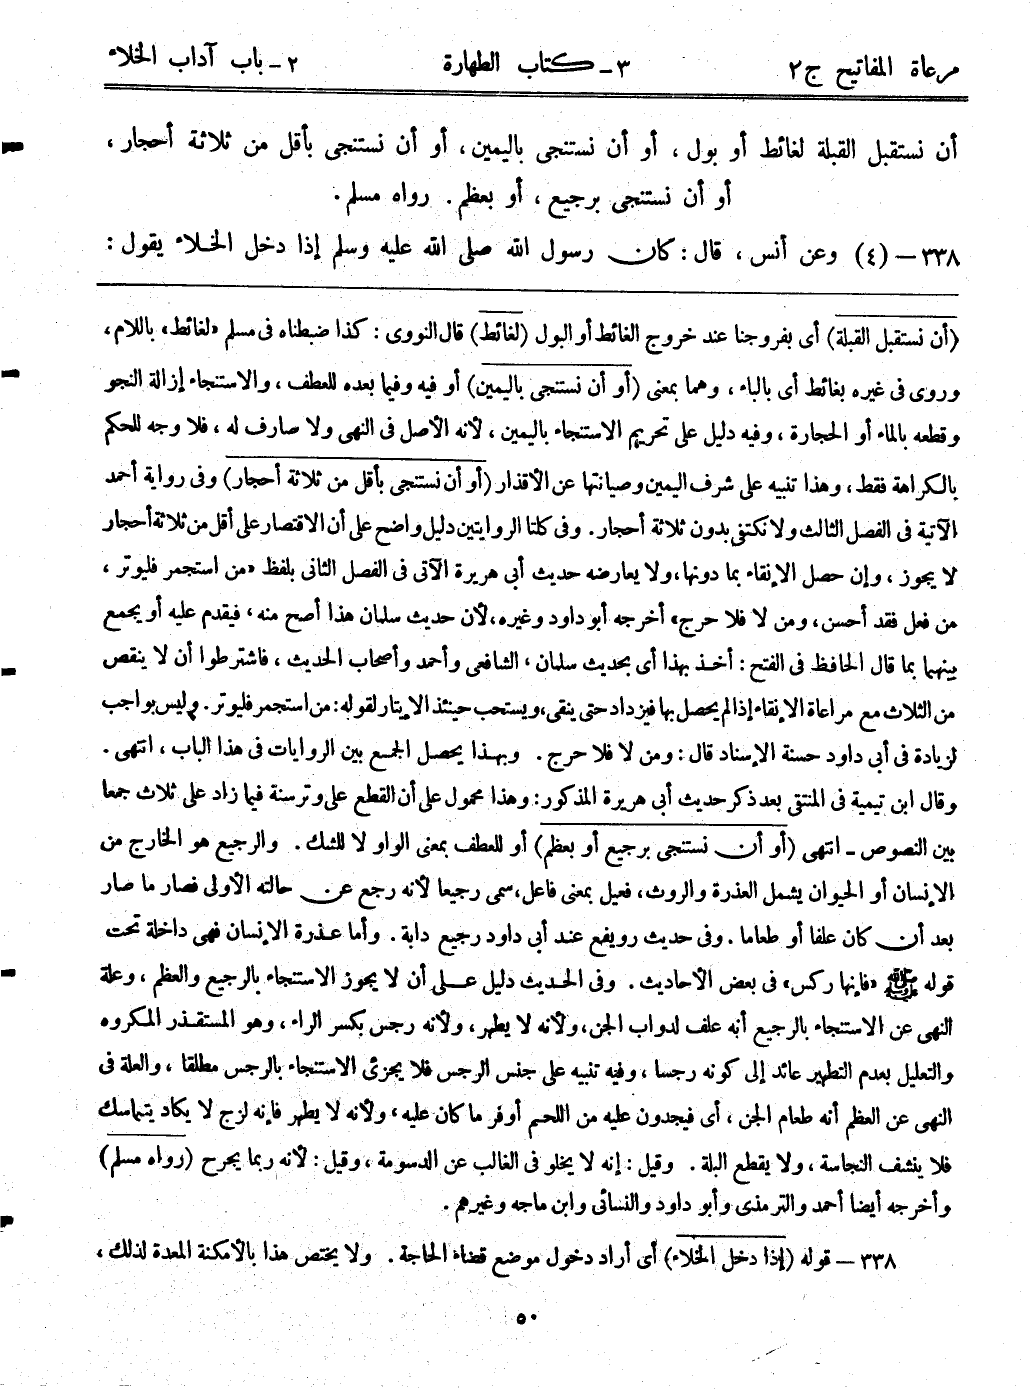 مرعاة المفاتيح ج٢ ٣ - كتاب الطهارة ٢ - باب آداب الخلاء
أن نستقبل القبلة لغائط أو بول ، أو أن نستنجى باليمين ، أو أن نستنجى بأقل من ثلاثة أحجار ،
أو أن نستنجى برجيع ، أو بعظم . رواه مسلم .
٣٣٨ – (٤) وعن أنس ، قال : كان رسول الله صلى الله عليه وسلم إذا دخل الخلاء يقول :
(أن نستقبل القبلة) أى بفروجنا عند خروج الغائط أو البول (لغائط) قال النووى : كذا ضبطناه فى مسلم «لغائط» باللام ،
وروى فى غيره بغائط أى بالباء ، وهما بمعنى (أو أن نستنجى باليمين) أو فيه وفيما بعده للعطف ، والاستنجاء إزالة النجو
وقطعه بالماء أو الحجارة ، وفيه دليل على تحريم الاستنجاء باليمين ، لأنه الأصل فى النهى ولا صارف له ، فلا وجه للحكم
بالكراهة فقط ، وهذا تنبيه على شرف اليمين وصيانتها عن الأقذار (أو أن نستنجى بأقل من ثلاثة أحجار) وفى رواية أحمد
الآتية فى الفصل الثالث ولا نكتفى بدون ثلاثة أحجار . وفى كلتا الروايتين دليل واضح على أن الاقتصار على أقل من ثلاثة أحجار
لا يجوز ، وإن حصل الإنقاء بما دونها ، ولا يعارضه حديث أبى هريرة الآتى فى الفصل الثانى بلفظ «من استجمر فليوتر ،
من فعل فقد أحسن ، ومن لا فلا حرج» أخرجه أبو داود وغيره ، لأن حديث سلمان هذا أصح منه ، فيقدم عليه أو يجمع
بينهما بما قال الحافظ فى الفتح : أخذ بهذا أى بحديث سلمان ، الشافعى وأحمد وأصحاب الحديث ، فاشترطوا أن لا ينقص
من الثلاث مع مراعاة الإنقاء إذا لم يحصل بها فيزداد حتى ينقى ، ويستحب حينئذ الإيتار لقوله : من استجمر فليوتر . وليس بواجب
لزيادة فى أبى داود حسنة الإسناد قال : ومن لا فلا حرج . وبهذا يحصل الجمع بين الروايات فى هذا الباب ، انتهى .
وقال ابن تيمية فى المنتقى بعد ذكر حديث أبى هريرة المذكور : وهذا محمول على أن القطع على وتر سنة فيما زاد على ثلاث جمعا
بين النصوص - انتهى (أو أن نستنجى برجيع أو بعظم) أو للعطف بمعنى الواو لا للشك . والرجيع هو الخارج من
الإنسان أو الحيوان يشمل العذرة والروث ، فعيل بمعنى فاعل ، سمى رجيعا لأنه رجع عن حالته الأولى فصار ما صار
بعد أن كان علفا أو طعاما . وفى حديث رويفع عند أبى داود رجيع دابة . وأما عذرة الإنسان فهى داخلة تحت
قوله ﷺ «فإنها ركس» فى بعض الأحاديث . وفى الحديث دليل على أن لا يجوز الاستنجاء بالرجيع والعظم ، وعلة
النهى عن الاستنجاء بالرجيع أنه علف لدواب الجن ، ولأنه لا يطهر ، ولأنه رجس بكسر الراء ، وهو المستقذر المكروه
والتعليل بعدم التطهير عائد إلى كونه رجسا ، وفيه تنبيه على جنس الرجس فلا يجزئ الاستنجاء بالرجس مطلقا ، والعلة فى
النهى عن العظم أنه طعام الجن ، أى فيجدون عليه من اللحم أوفر ما كان عليه ، ولأنه لا يطهر فإنه لزج لا يكاد يتماسك
فلا ينشف النجاسة ، ولا يقطع البلة . وقيل : إنه لا يخلو فى الغالب عن الدسومة ، وقيل : لأنه ربما يجرح (رواه مسلم)
وأخرجه أيضا أحمد والترمذى وأبو داود والنسائى وابن ماجه وغيرهم .
٣٣٨ – قوله (إذا دخل الخلاء) أى أراد دخول موضع قضاء الحاجة . ولا يختص هذا بالأمكنة المعدة لذلك ،
٥٠